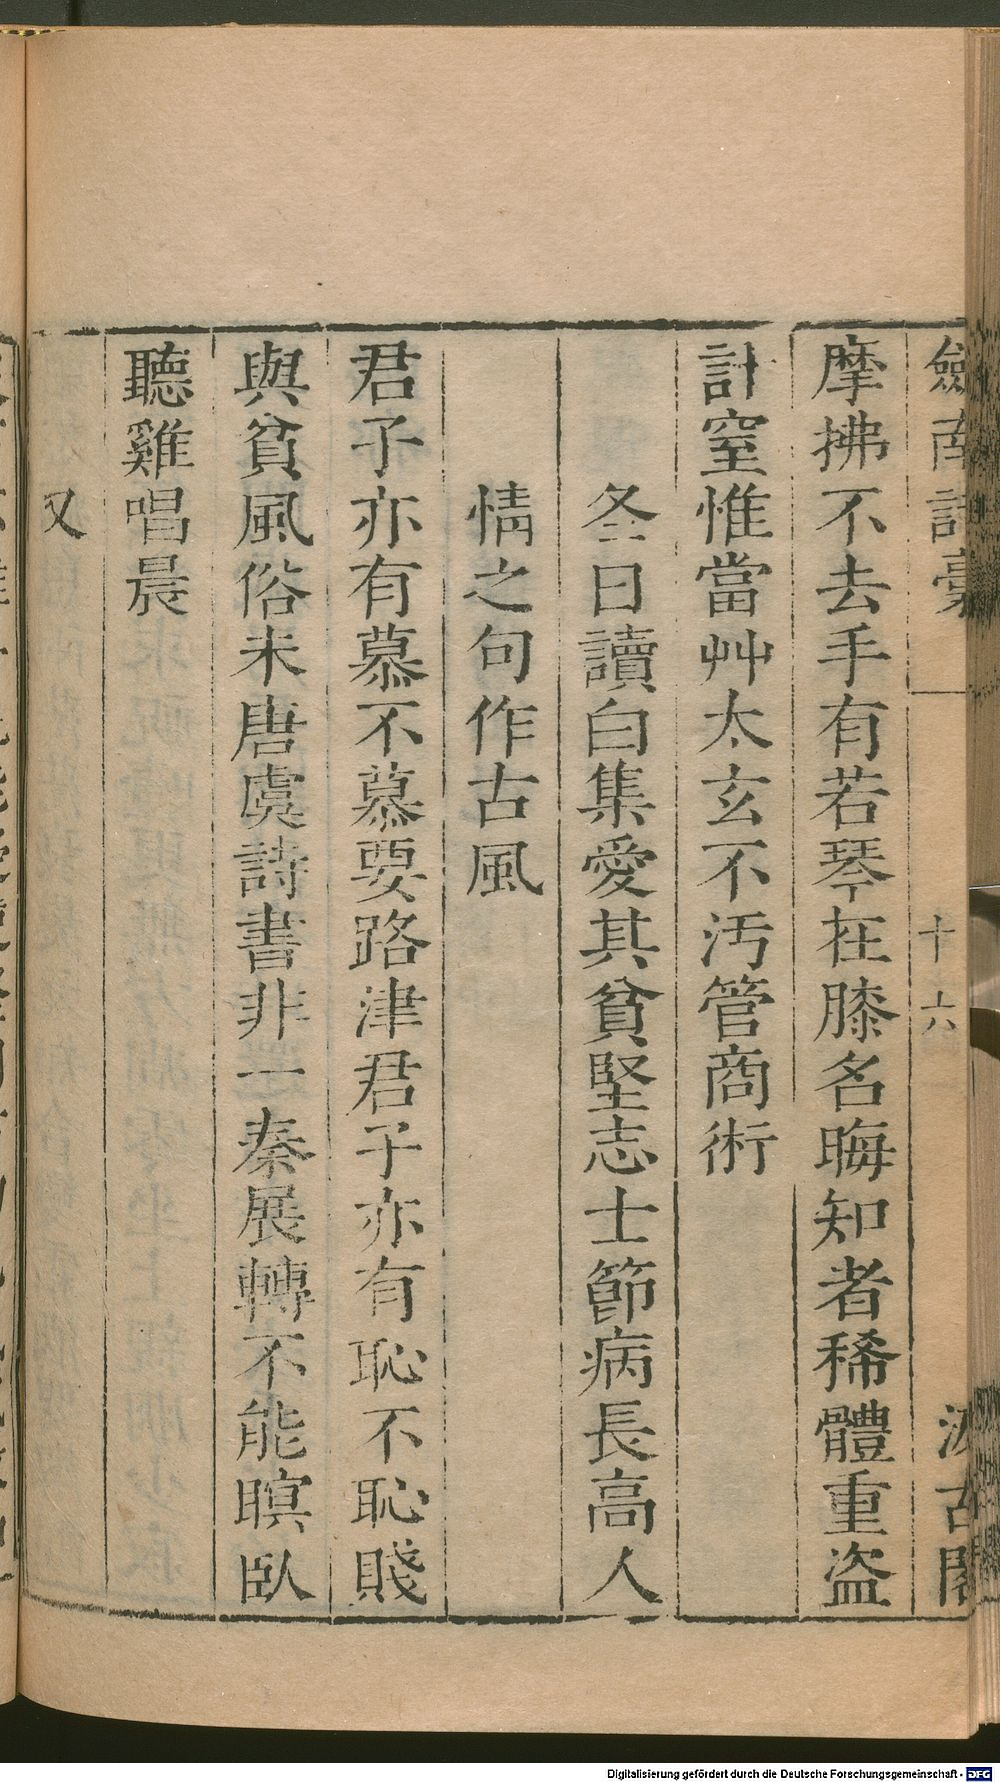 劍南詩稾 十六 汲古閣
摩拂不去手有若琴在膝名晦知者稀體重盜
計窒惟當艸太玄不汚管商術
冬日讀白集愛其貧堅志士節病長高人
情之句作古風
君子亦有慕不慕要路津君子亦有恥不恥賤
與貧風俗未唐虞詩書非一秦展轉不能瞑臥
聽雞唱晨
又
Digitalisierung gefördert durch die Deutsche Forschungsgemeinschaft - DFG